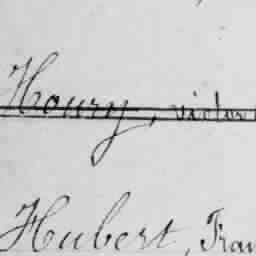 Houry, victor
Hubert, Fran